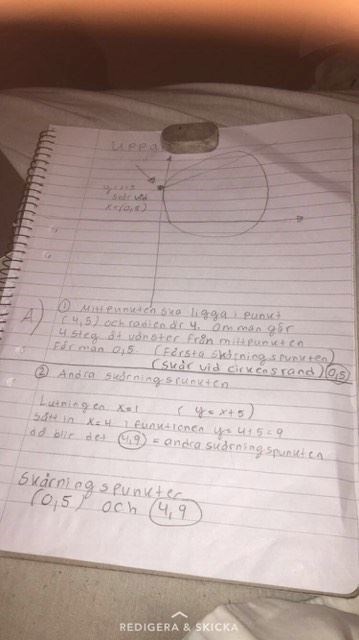 Uppg
skär vid
x=(0,5)
A) ① Mittpunkten ska ligga i punkt
(4,5) och radien är 4. Om man går
4 steg åt vänster från mittpunkten
får man 0,5 (första skärningspunkten)
(skär vid cirkelns rand) (0,5)
② Andra skärningspunkten
Lutningen x=1 (y=x+5)
sätt in x=4 i funktionen y=4+5=9
då blir det (4,9) = andra skärningspunkten
Skärningspunkter
(0,5) och (4,9)
REDIGERA & SKICKA